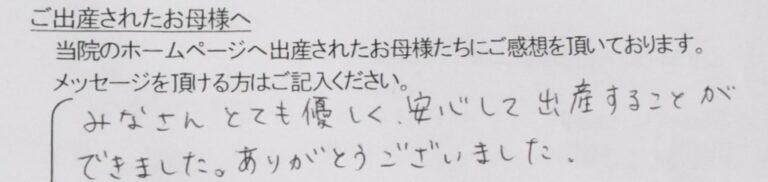 ご出産されたお母様へ
当院のホームページへ出産されたお母様たちにご感想を頂いております。
メッセージを頂ける方はご記入ください。
みなさん とても優しく、安心して 出産することが
できました。ありがとうございました。